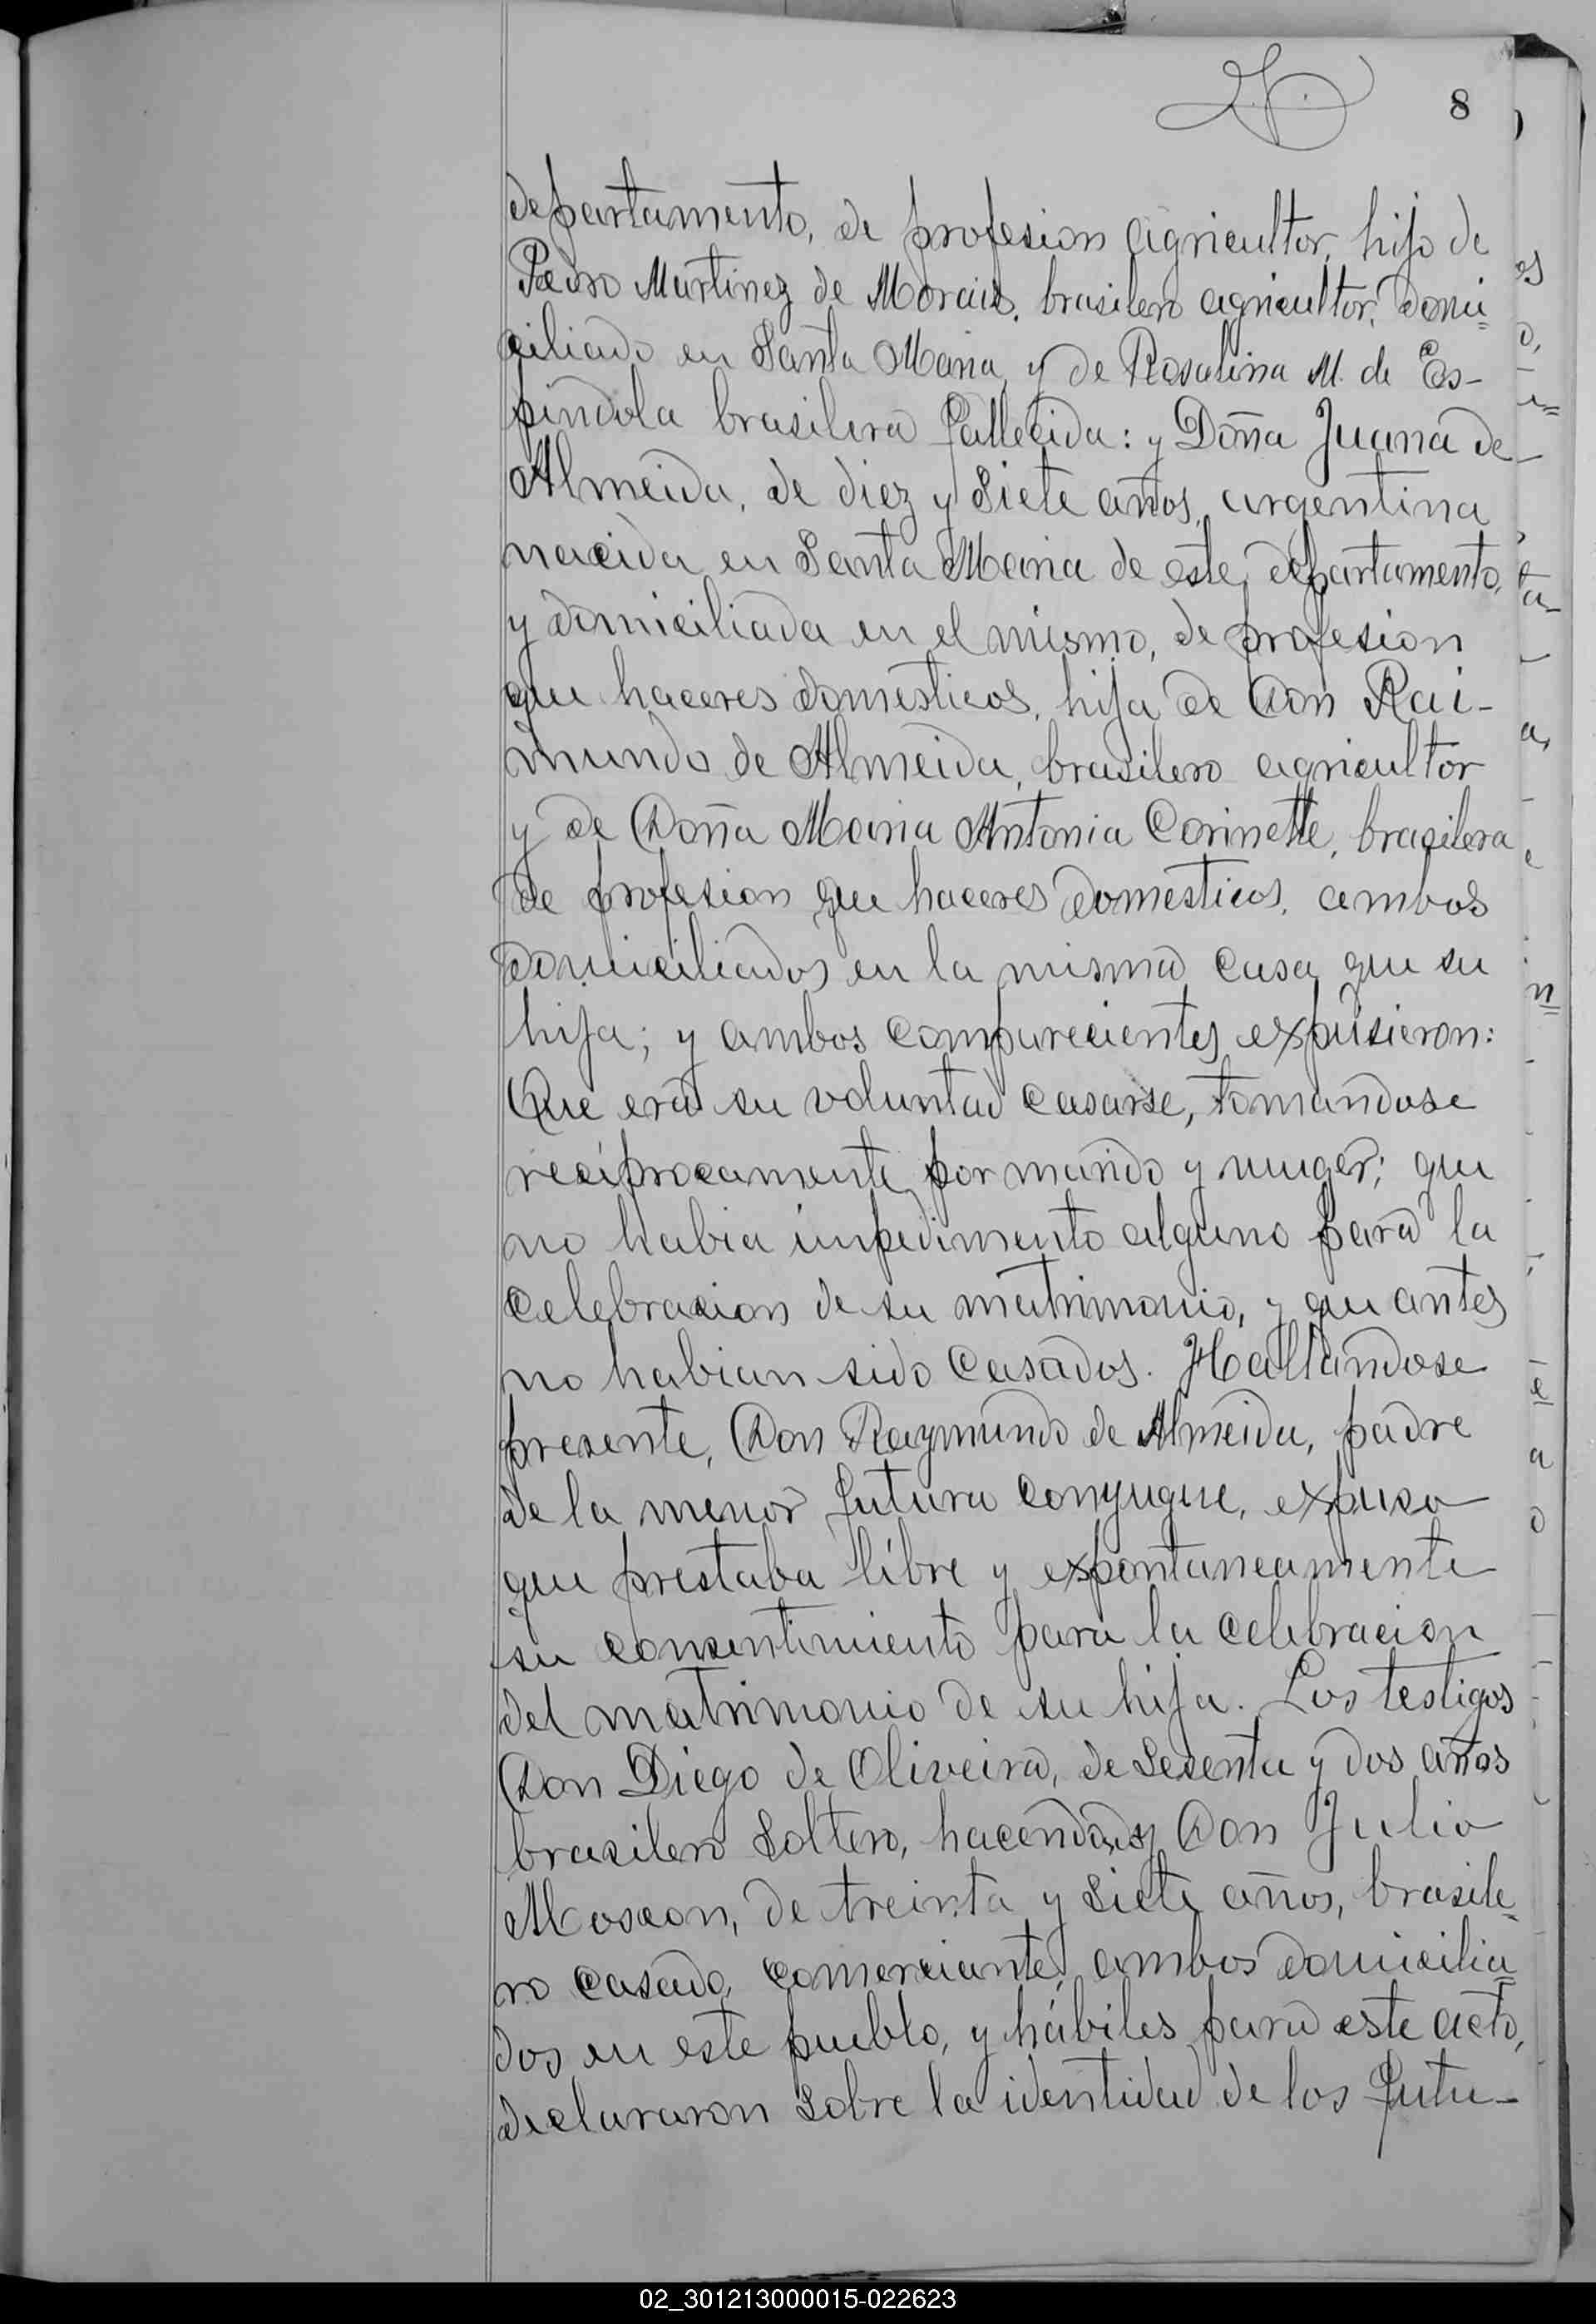 8
departamento, de profesion agricultor, hijo de
Pedro Martinez de Morais, brasilero agricultor, domi=
ciliado en Santa Maria, y de Rosalina M. de Es-
pindola brasilera fallecida: y Doña Juana de
Almeida, de diez y siete años, argentina
nacida en Santa Maria de este departamento,
y domiciliada en el mismo, de profesion
que haceres domesticos, hija de Don Rai-
mundo de Almeida, brasilero agricultor
y de Doña Maria Antonia Corinette, brasilera
de profesion que haceres domesticos, ambos
domiciliados en la misma casa que su
hija; y ambos comparecientes expusieron:
Que era su voluntad casarse, tomandose
reciprocamente por marido y muger; que
no habia impedimento alguno para la
celebracion de su matrimonio, y que antes
no habian sido casados. Hallandose
presente, Don Raymundo de Almeida, padre
de la menor futura conyugue, expuso
que prestaba libre y expontaneamente
su consentimiento para la celebracion
del matrimonio de su hija. Los testigos
Don Diego de Oliveira, de sesenta y dos años
brasilero soltero, hacendado y Don Julio
Moscon, de treinta y siete años, brasile=
ro casado, comerciante, ambos domicilia=
dos en este pueblo, y hábiles para este acto,
declararon sobre la identidad de los futu-
02_301213000015-022623